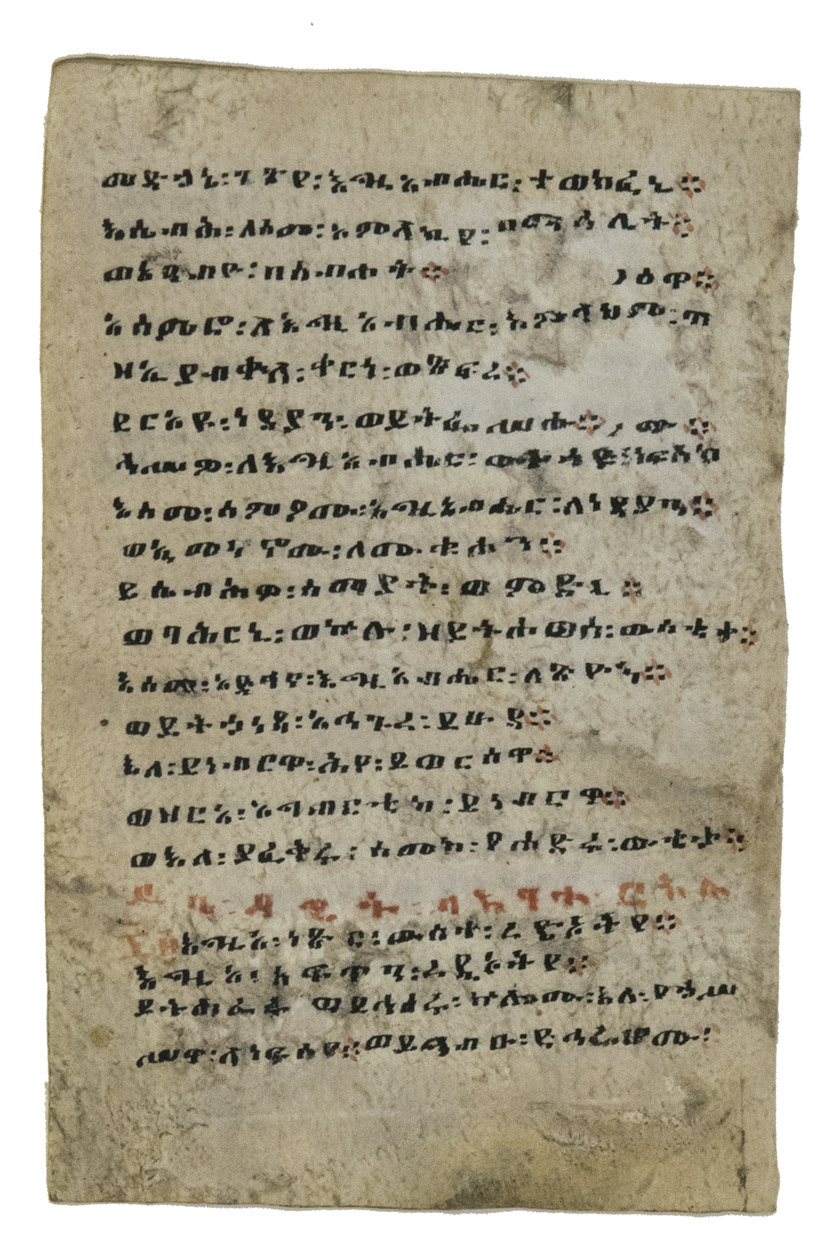 መድኃኒ፡ገጽየ፡እግዚአብሔር፡ተወክፈኒ።
እሴብሕ፡ለስመ፡አምላኪየ፡በማኅሌት።
ወአዔብዮ፡በስብሐት። ጣዕዋ።
አሠምሮ፡ለእግዚአብሔር፡እምላህም፡ጣ
ዘአብቀለ፡ቀርነ፡ወጽፍረ።
ይርአዩ፡ነዳያን፡ወይትፌሥሑ። ሙ።
ኅሥዎ፡ለእግዚአብሔር፡ወትሐዩ፡ነፍስክ
እስመ፡ሰምዖሙ፡እግዚአብሔር፡ለነዳያን።
ወኢመነኖሙ፡ለሙቁሓን።
ይሴብሕዎ፡ሰማያት፡ወምድር።
ወባሕርኒ፡ወኵሉ፡ዘይትሐወስ፡ውስቴታ።
እስመ፡አድኃና፡እግዚአብሔር፡ለጽዮን።
ወይትኃነፃ፡አህጉረ፡ይሁዳ።
እለ፡ይነብርዋ፡ህየ፡ይወርስዋ።
ወዘርአ፡አግብርቲከ፡ይነብርዋ።
ወእለ፡ያፈቅሩ፡ስመከ፡የሐድሩ፡ውስቴታ።
ዘዳዊት በእንተ
እግዚኦ፡ነጽር፡ውስተ፡ረዲኦትየ።
እግዚኦ፡አፍጥን፡ረዲኦትየ።
ይትሐፈሩ ወይኅሥሩ፡ኵሎሙ፡እለ፡የኃሥ
ሥዋ፡ለነፍስየ።ወይግብኡ፡ድኅሬሆሙ፡